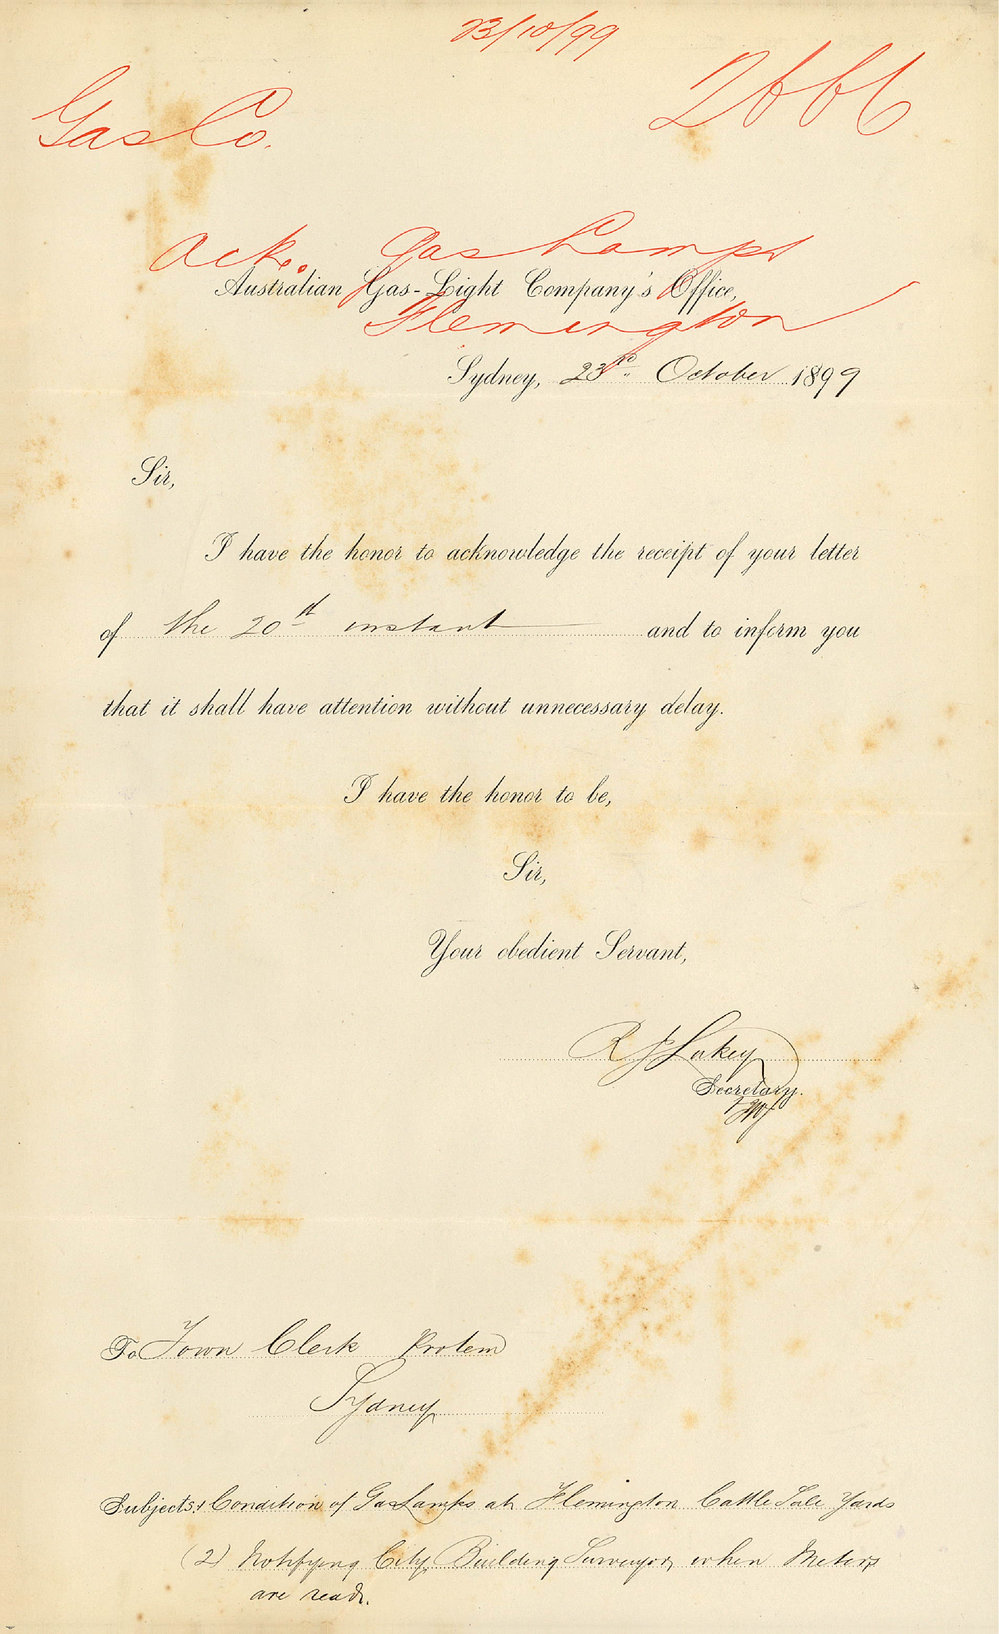 23/10/99
2666
Gas Co.
Ack. Gas Lamps
Australian Gas-Light Company's Office,
Flemington
Sydney, 23rd October 1899
Sir,
I have the honor to acknowledge the receipt of your letter
of the 20th instant and to inform you
that it shall have attention without unnecessary delay.
I have the honor to be,
Sir,
Your obedient Servant,
R J Lukey
Secretary.
To Town Clerk Protem
Sydney
Subjects: 1 Condition of Gas Lamps at Flemington Cattle Sale Yards
(2) Notifying City Building Surveyor, when Meters
are read.